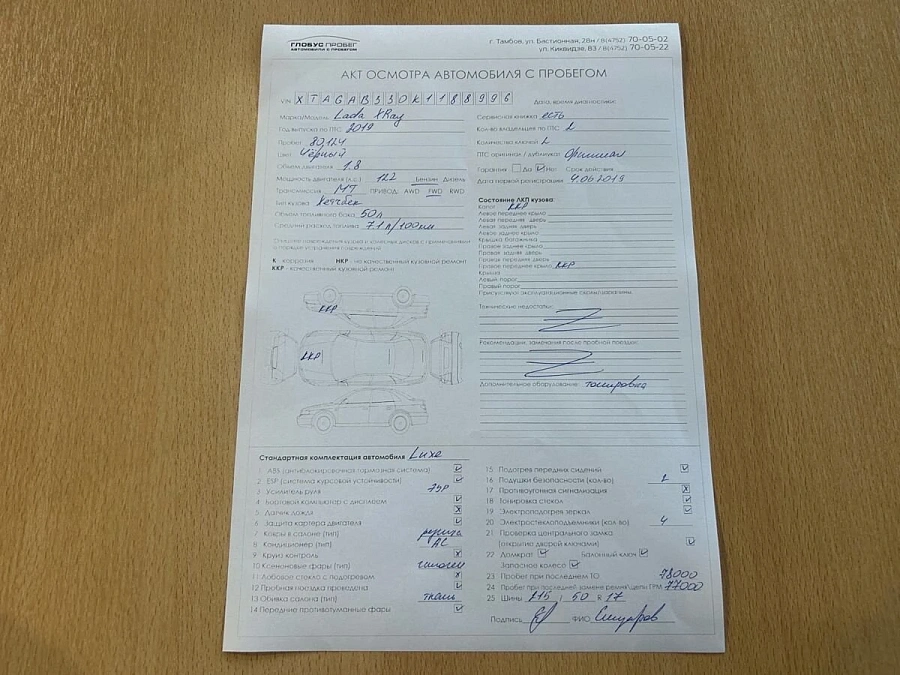 ГЛОБУС ПРОБЕГ
АВТОМОБИЛИ С ПРОБЕГОМ
г. Тамбов, ул. Бастионная, 28н / 8(4752) 70-05-02
ул. Киквидзе, 83 / 8(4752) 70-05-22
АКТ ОСМОТРА АВТОМОБИЛЯ С ПРОБЕГОМ
VIN XTAGAB330K1188996
Дата, время диагностики:
Марка/Модель Lada XRay
Год выпуска по ПТС 2019
Пробег 80,124
Цвет Чёрный
Объем двигателя 1.8
Мощность двигателя (л.с.) 122 Бензин Дизель
Трансмиссия МТ ПРИВОД: AWD FWD RWD
Тип кузова Хетчбек
Объем топливного бака 50л
Средний расход топлива 7.1 л/100км
Сервисная книжка есть
Кол-во владельцев по ПТС 2
Количество ключей 2
ПТС оригинал / дубликат Оригинал
Гарантия Да Нет Срок действия
Дата первой регистрации 4.06.2019
Состояние ЛКП кузова
Капот ККР
Левое переднее крыло
Левая передняя дверь
Левая задняя дверь
Левое заднее крыло
Крышка багажника
Правое заднее крыло
Правая задняя дверь
Правая передняя дверь
Правое переднее крыло ККР
Крыша
Левый порог
Правый порог
Присутствуют эксплуатационные сколы/царапины
К - коррозия НКР - не качественный кузовной ремонт
ККР - качественный кузовной ремонт
ККР
ККР
Технические недостатки:
Рекомендации, замечания после пробной поездки:
Дополнительное оборудование: тонировка
Стандартная комплектация автомобиля Luxe
1 ABS (антиблокировочная тормозная система)
2 ESP (система курсовой устойчивости)
3 Усилитель руля ЭУР
4 Бортовой компьютер с дисплеем
5 Датчик дождя
6 Защита картера двигателя
7 Ковры в салоне (тип) резина
8 Кондиционер (тип) AC
9 Круиз контроль
10 Ксеноновые фары (тип) галоген
11 Лобовое стекло с подогревом
12 Пробная поездка проведена
13 Обивка салона (тип) ткань
14 Передние противотуманные фары
15 Подогрев передних сидений
16 Подушки безопасности (кол-во) 2
17 Противоугонная сигнализация
18 Тонировка стекол
19 Электроподогрев зеркал
20 Электростеклоподъемники (кол-во) 4
21 Проверка центрального замка
(открытие дверей ключами)
22 Домкрат Балонный ключ
Запасное колесо
23 Пробег при последнем ТО 78000
24 Пробег при последней замене ремня/цепи ГРМ 77000
25 Шины 215 / 50 R 17
Подпись ФИО